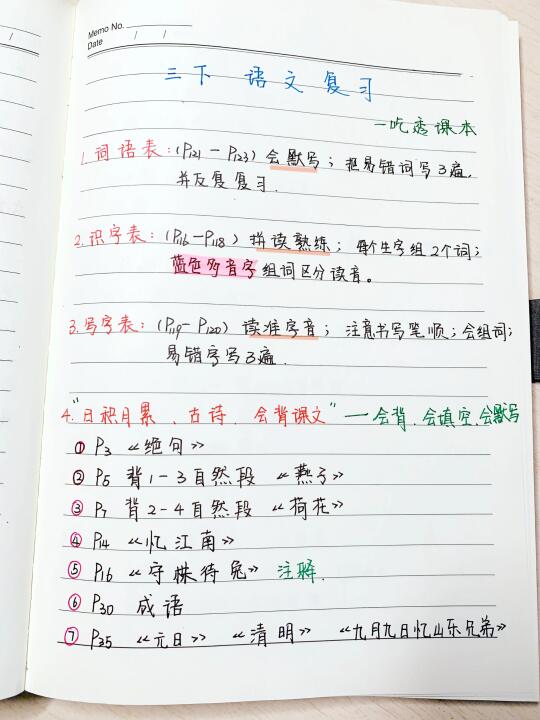 Memo No.
Date / /
三下 语文复习
—吃透课本
1.词语表:(P121—P123)会默写;把易错词写3遍,
并反复复习.
2.识字表:(P116—P118)拼读熟练;每个生字组2个词;
蓝色多音字组词区分读音。
3.写字表:(P119—P120)读准字音;注意书写笔顺;会组词;
易错字写3遍.
4."日积月累、古诗、会背课文"—会背,会填空,会默写
① P3 《绝句》
② P5 背1-3自然段 《燕子》
③ P7 背2-4自然段 《荷花》
④ P14 《忆江南》
⑤ P16 《守株待兔》 注释.
⑥ P30 成语
⑦ P35 《元日》 《清明》 《九月九日忆山东兄弟》